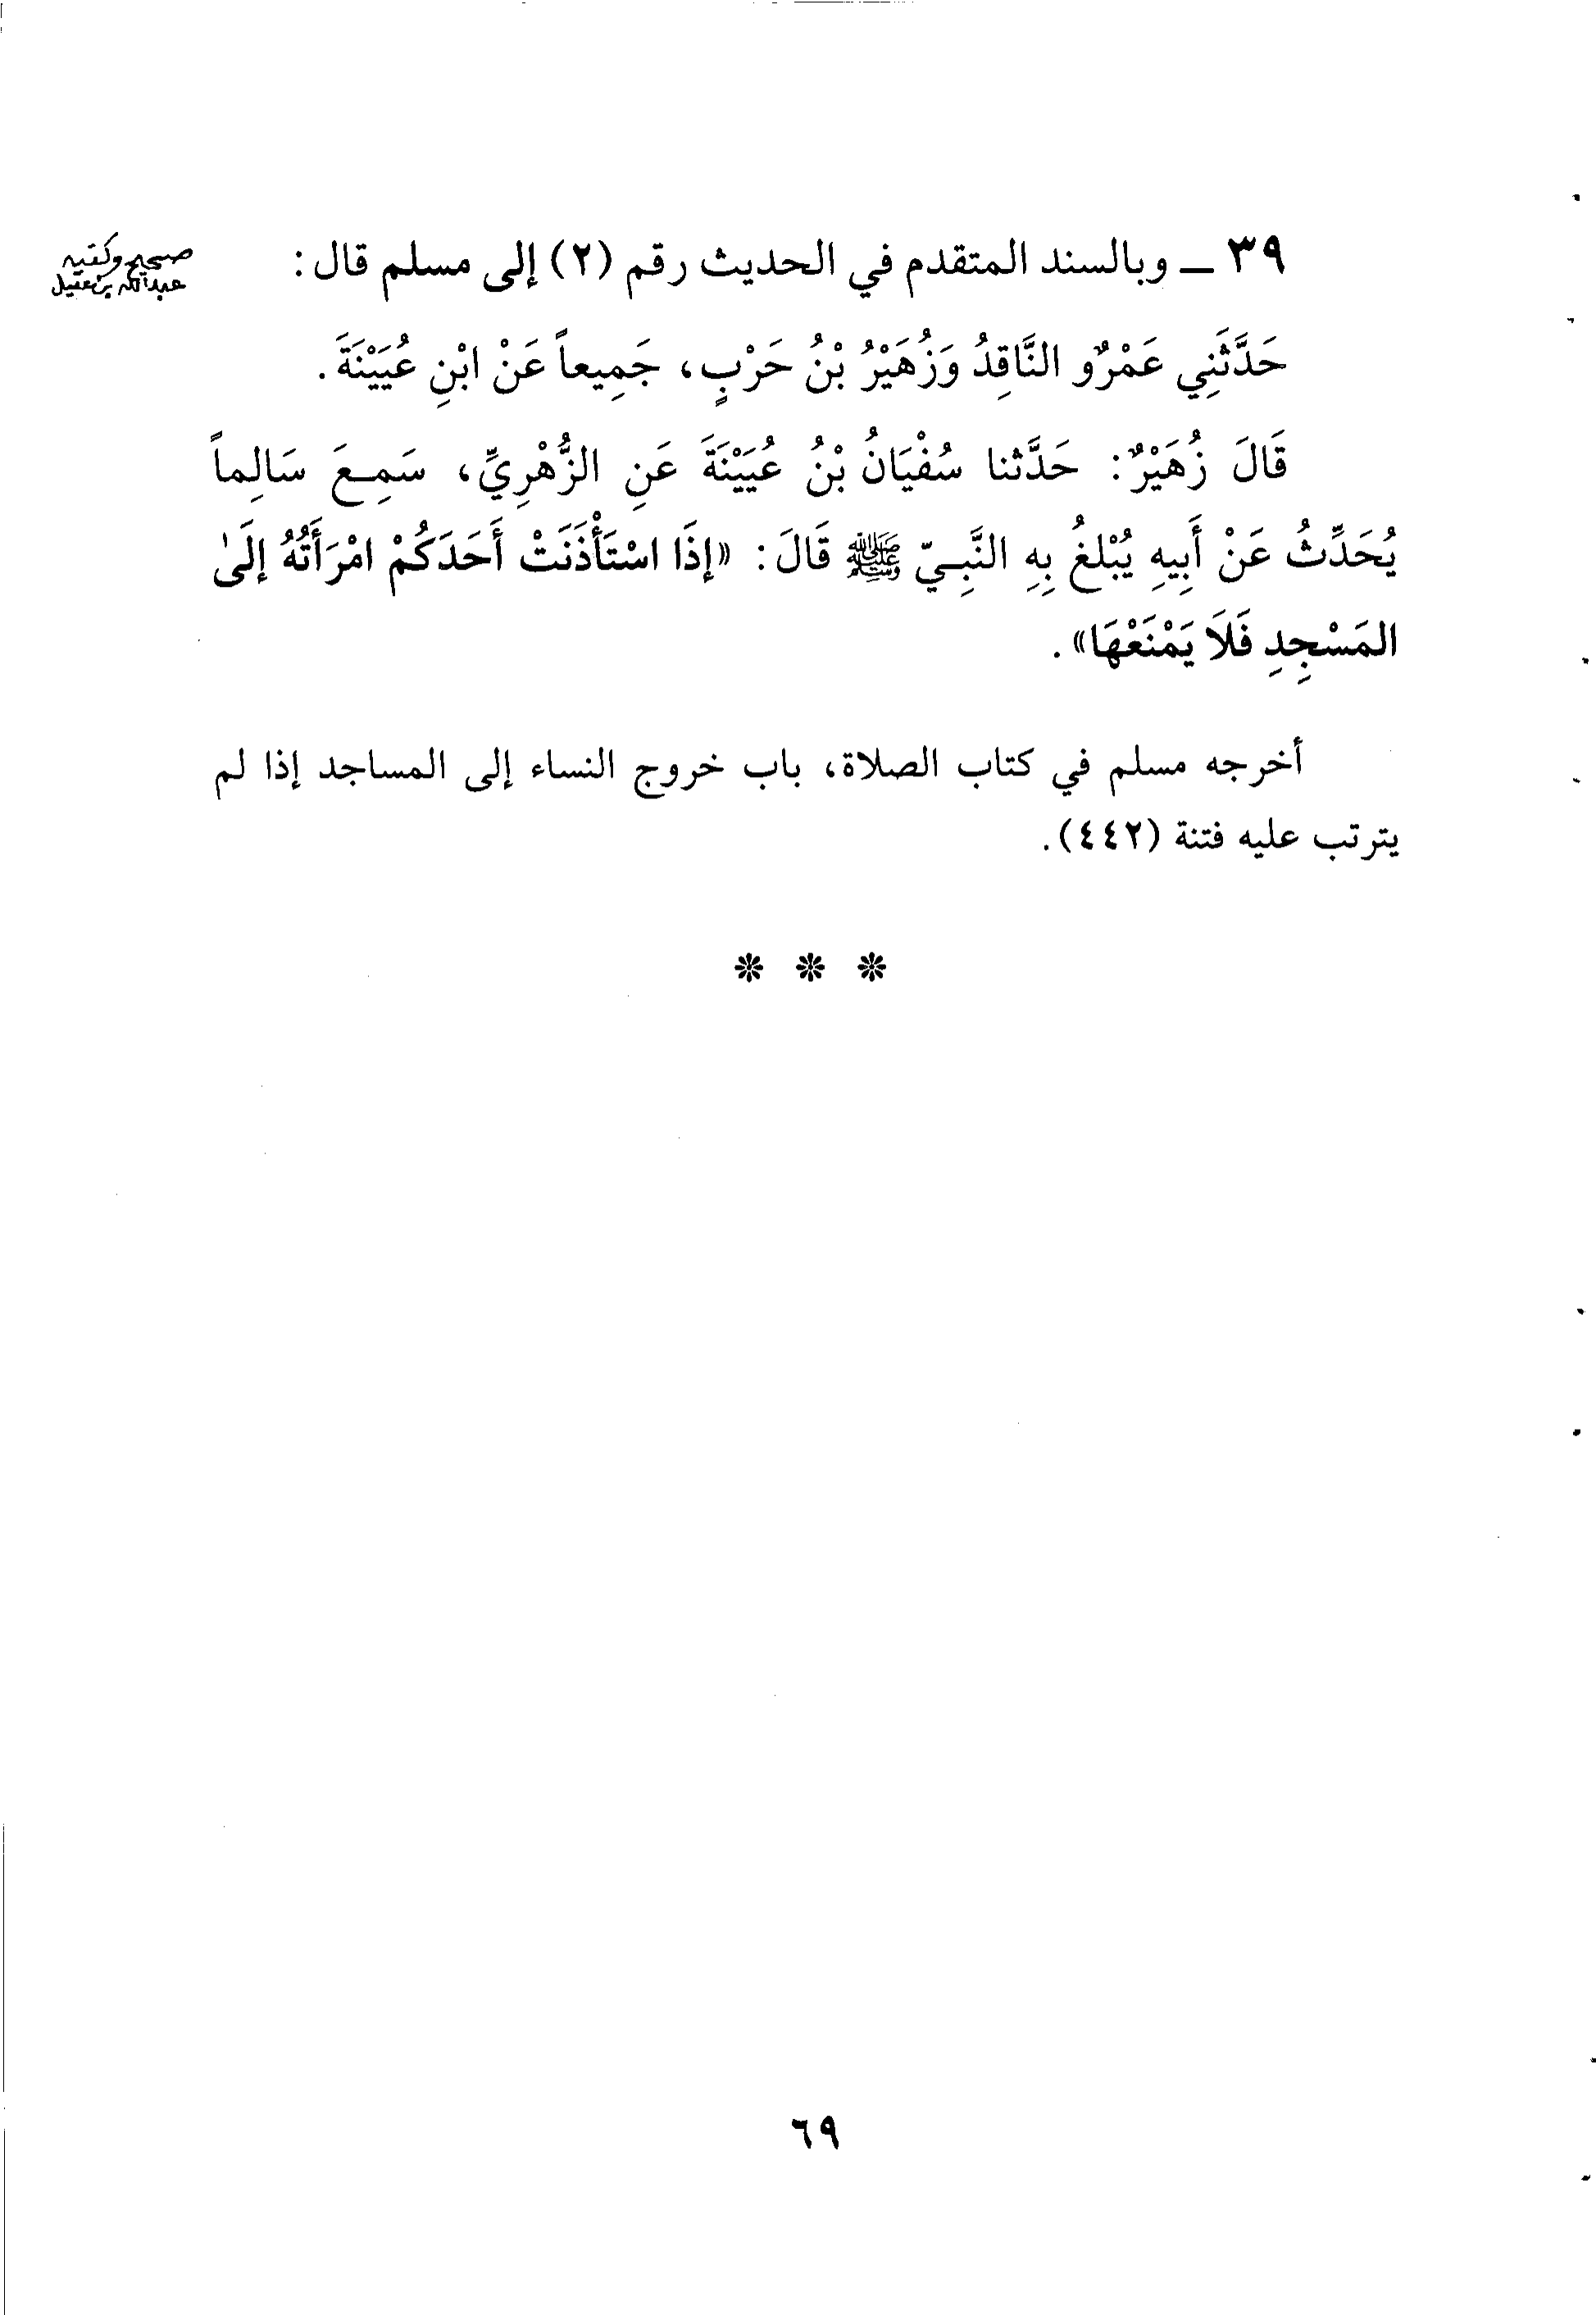 ٣٩ ــ وبالسند المتقدم في الحديث رقم (٢) إلى مسلم قال:
صحيح وكتبه
عبدالله بن عقيل
حَدَّثَنِي عَمْرٌو النَّاقِدُ وَزُهَيْرُ بْنُ حَرْبٍ، جَمِيعاً عَنْ ابْنِ عُيَيْنَةَ.
قَالَ زُهَيْرٌ: حَدَّثنا سُفْيَانُ بْنُ عُيَيْنَةَ عَنِ الزُّهْرِيِّ، سَمِعَ سَالِماً
يُحَدِّثُ عَنْ أَبِيهِ يُبْلغُ بِهِ النَّبِيّ ﷺ قَالَ: «إذَا اسْتَأْذَنَتْ أَحَدَكُمْ امْرَأَتُهُ إلَىٰ
المَسْجِدِ فَلَا يَمْنَعْهَا».
أخرجه مسلم في كتاب الصلاة، باب خروج النساء إلى المساجد إذا لم
يترتب عليه فتنة (٤٤٢).
* * *
٦٩